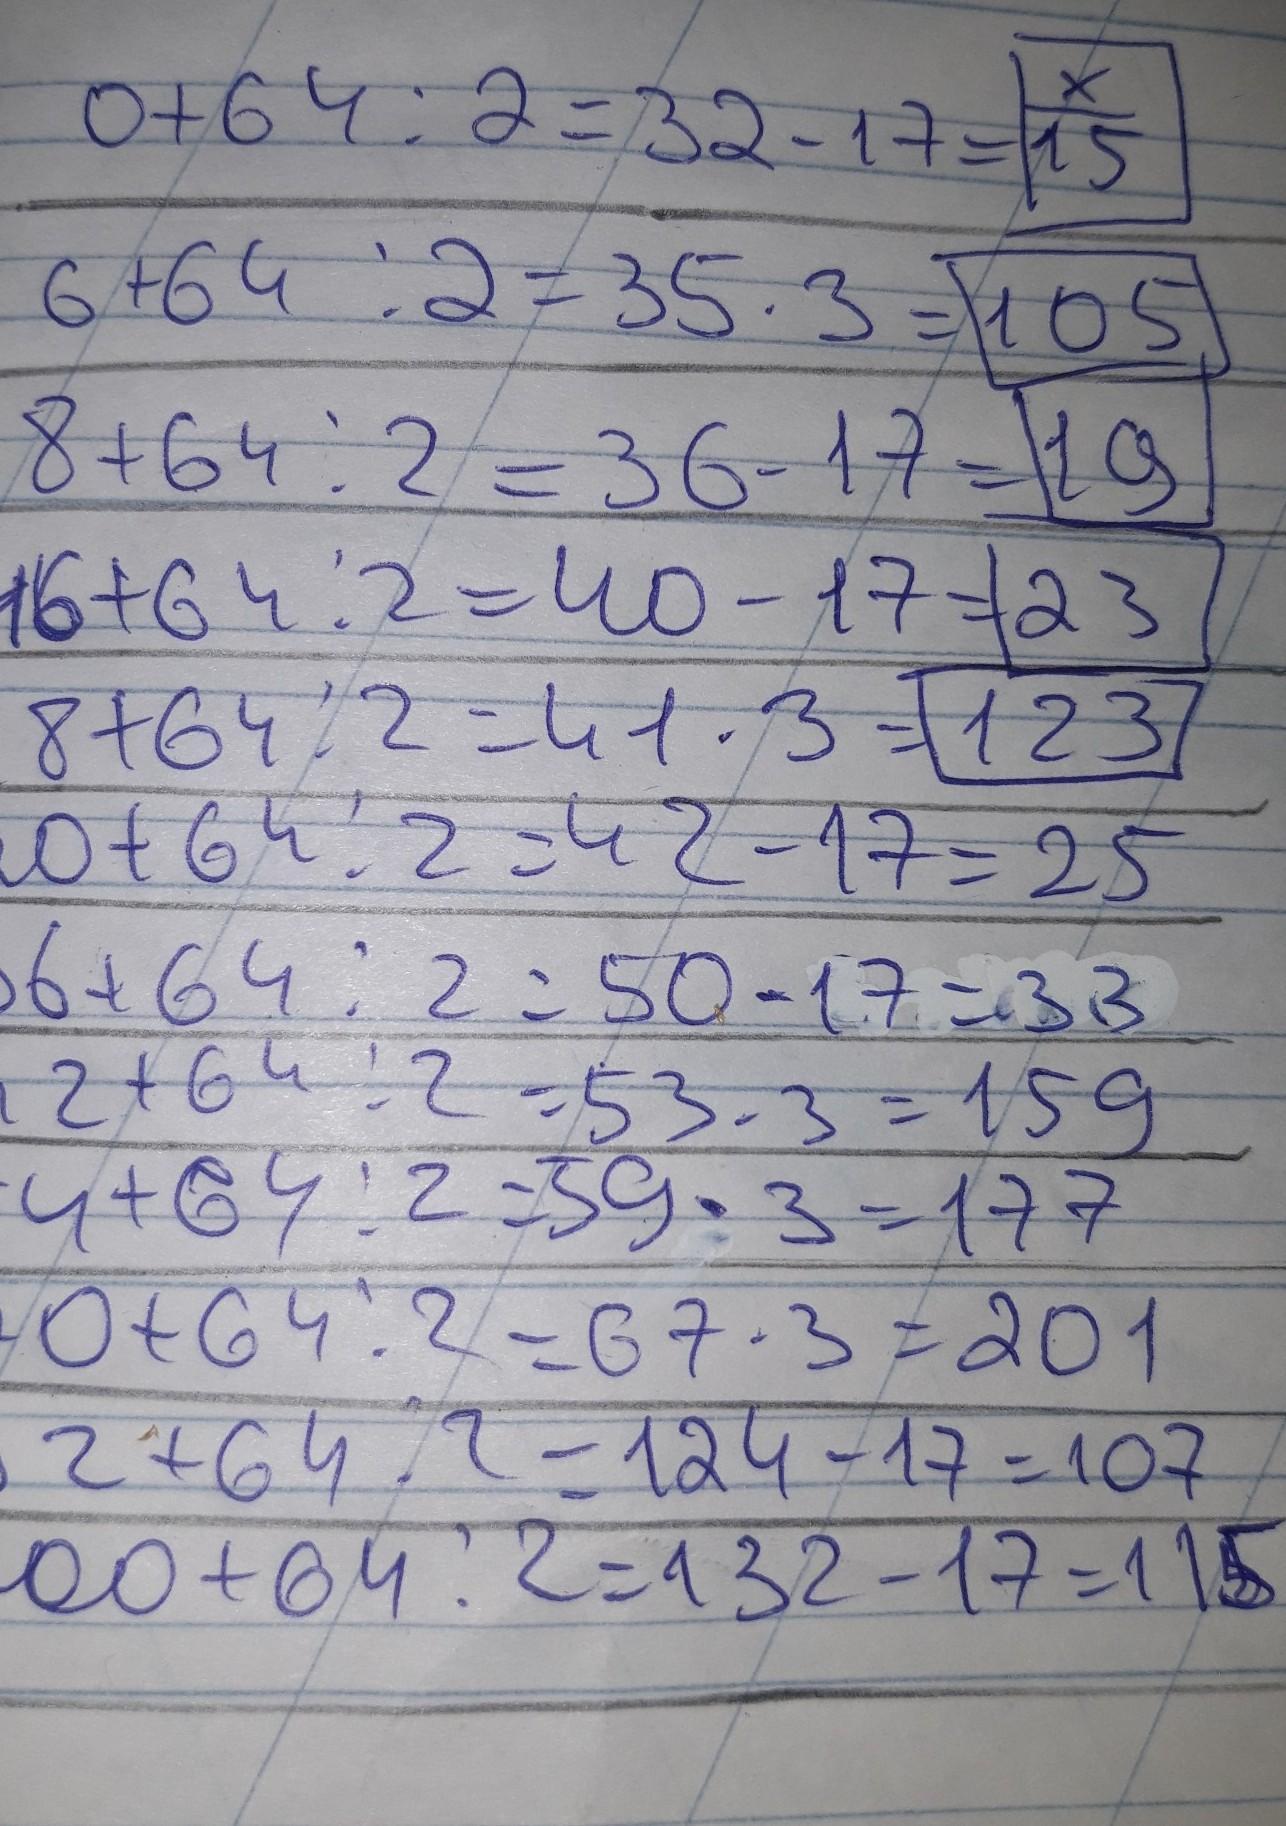 0+64:2=32-17=x/15
6+64:2=35·3=105
8+64:2=36-17=19
16+64:2=40-17=23
8+64:2=41·3=123
20+64:2=42-17=25
6+64:2=50-17=33
2+64:2=53·3=159
4+64:2=59·3=177
0+64:2=67·3=201
2+64:2=124-17=107
00+64:2=132-17=115